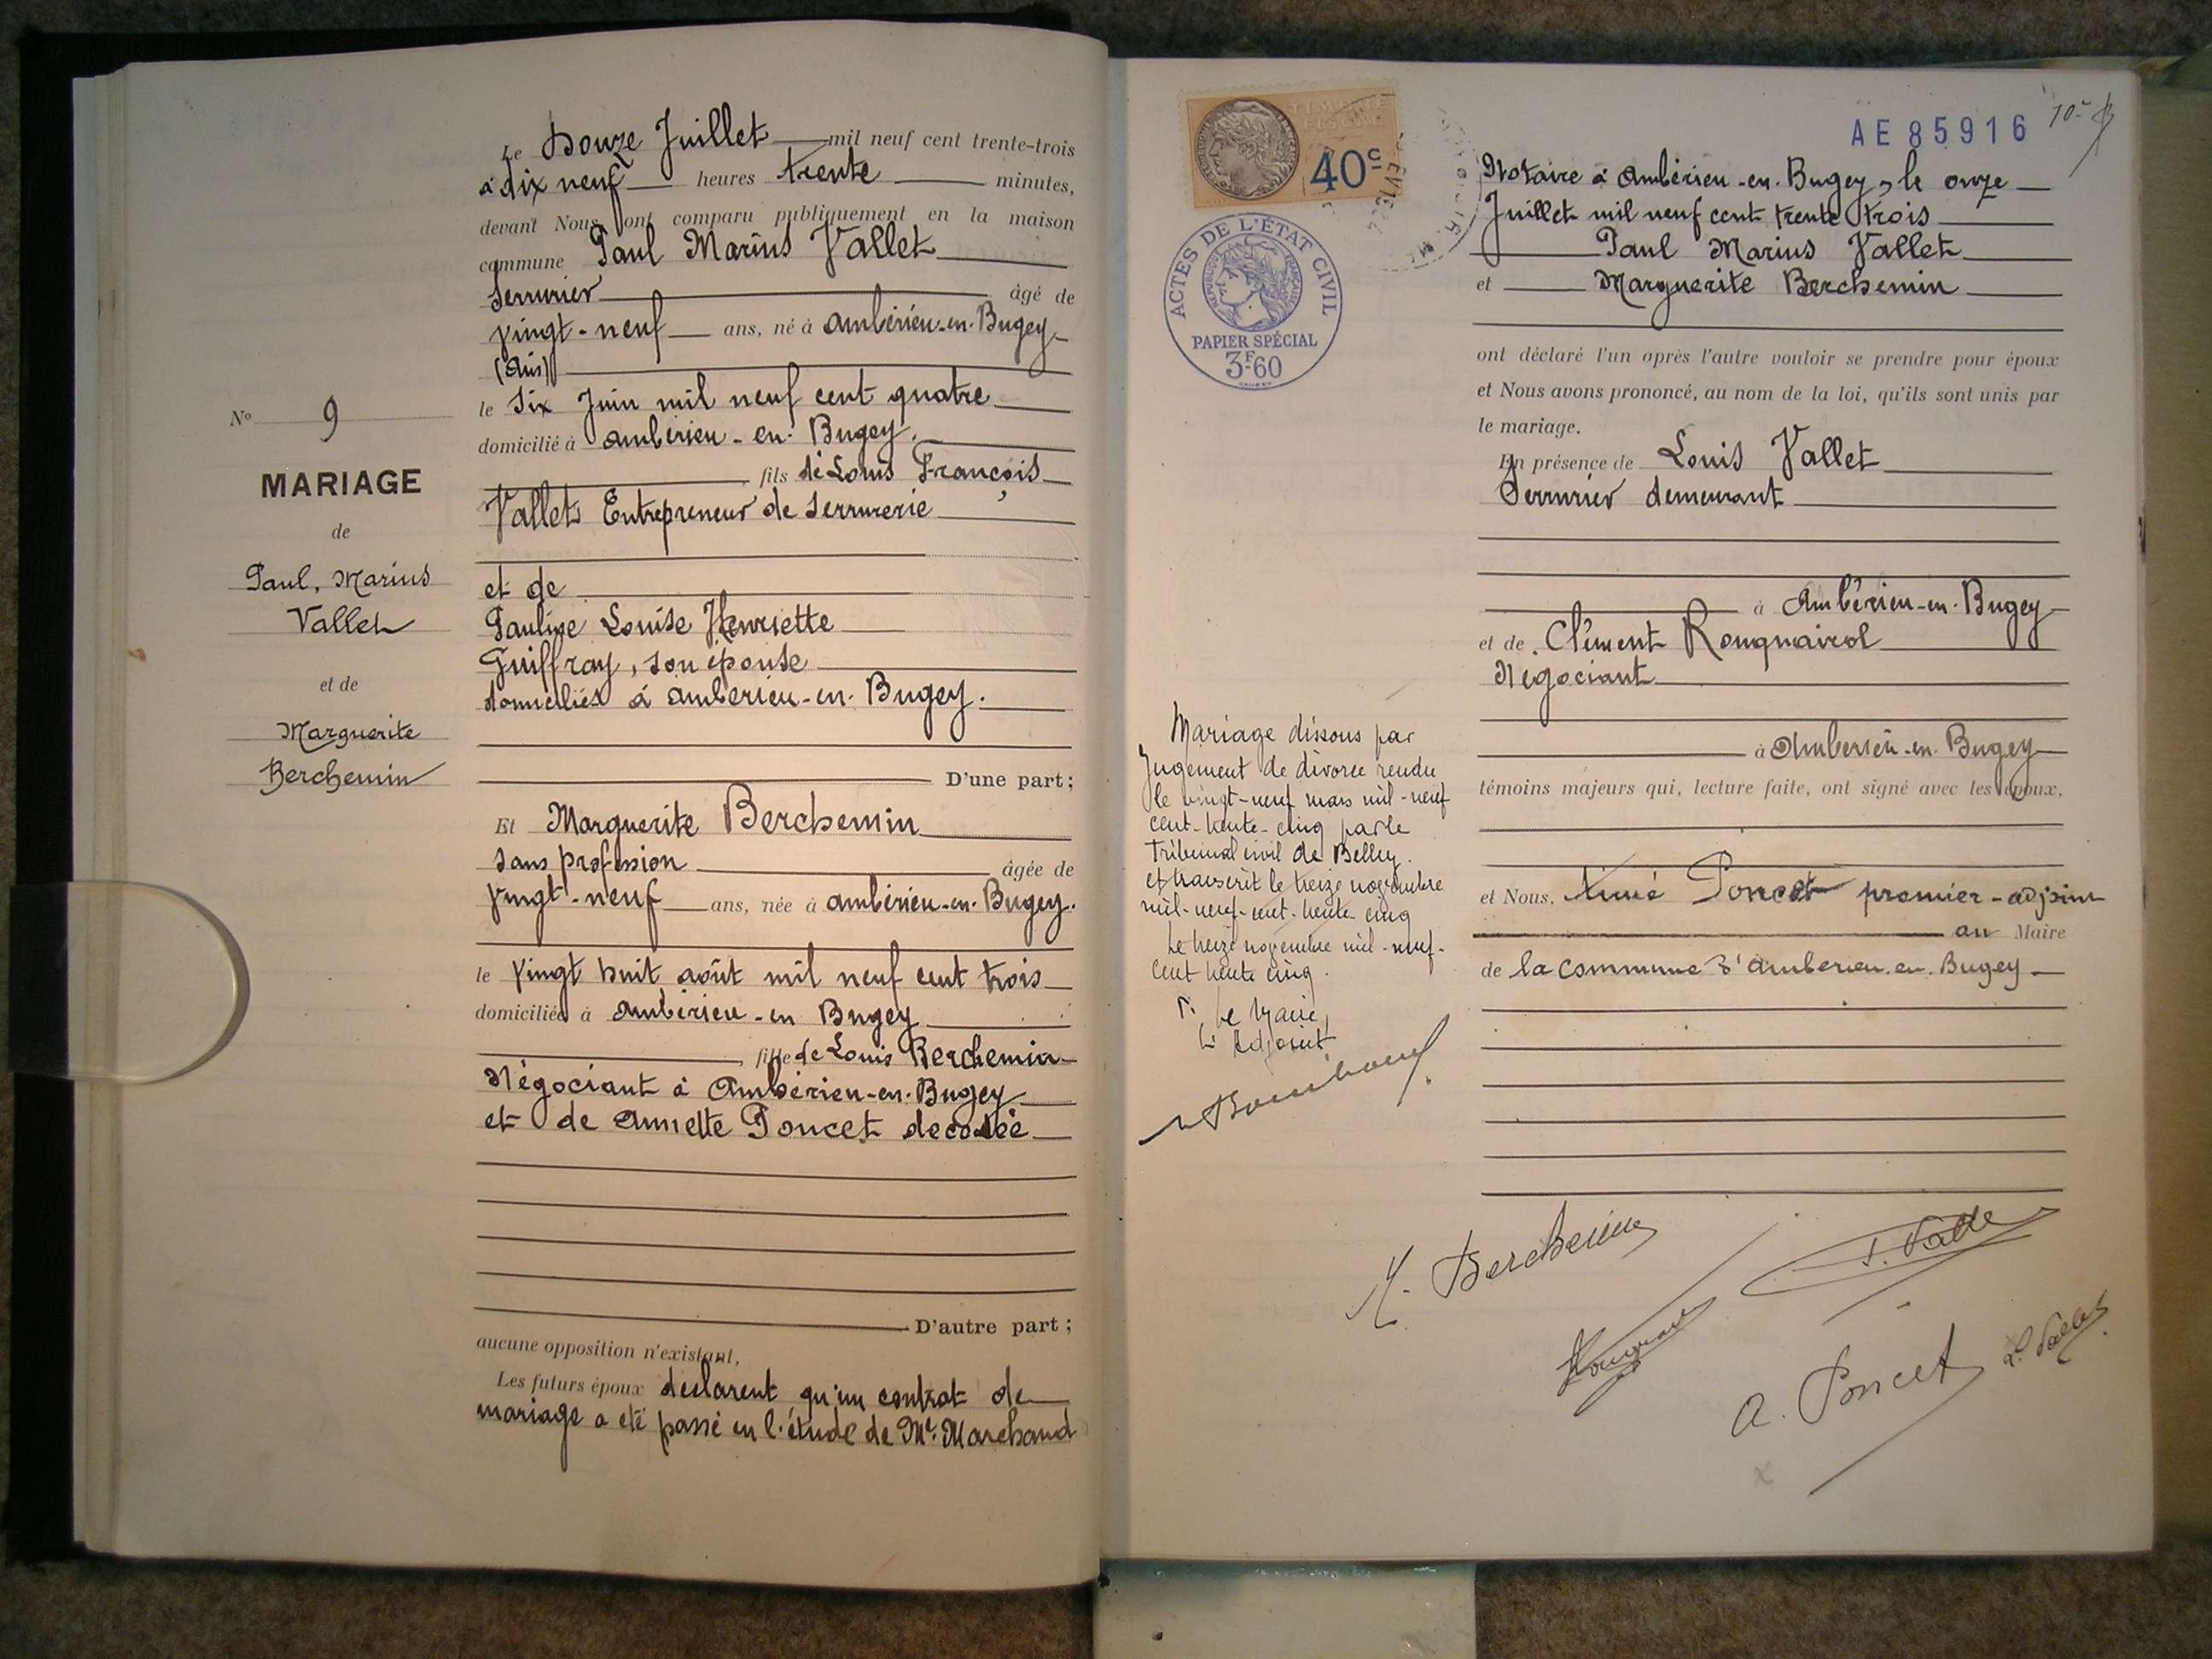 N° 9
MARIAGE
de
Paul, Marius
Vallet
et de
Marguerite
Berchemin
Le Douze Juillet mil neuf cent trente-trois
à dix neuf heures trente minutes,
devant Nous ont comparu publiquement en la maison
commune Paul Marius Vallet
Serrurier âgé de
vingt-neuf ans, né à Ambérieu-en-Bugey
(Ain)
le Six Juin mil neuf cent quatre
domicilié à Ambérieu-en-Bugey.
fils de Louis François
Vallet Entrepreneur de serrurerie
et de
Pauline Louise Henriette
Guiffray, son épouse
domiciliés à Ambérieu-en-Bugey.
D'une part;
Et Marguerite Berchemin
sans profession âgée de
vingt-neuf ans, née à Ambérieu-en-Bugey.
le vingt huit août mil neuf cent trois
domiciliée à Ambérieu-en Bugey
fille de Louis Berchemin
Négociant à Ambérieu-en-Bugey
et de Annette Poncet décédée
D'autre part;
aucune opposition n'existant,
Les futurs époux déclarent qu'un contrat de
mariage a été passé en l'étude de Me. Marchand
TIMBRE
FISCAL
40c
ACTES DE L'ÉTAT CIVIL
RÉPUBLIQUE FRANÇAISE
PAPIER SPÉCIAL
3F60
AE 85916
Notaire à Ambérieu-en-Bugey, le onze
Juillet mil neuf cent trente trois
Paul Marius Vallet
et Marguerite Berchemin
ont déclaré l'un après l'autre vouloir se prendre pour époux
et Nous avons prononcé, au nom de la loi, qu'ils sont unis par
le mariage.
En présence de Louis Vallet
Serrurier demeurant
à Ambérieu-en-Bugey
et de Clément Rouquairol
Négociant
à Ambérieu-en-Bugey
témoins majeurs qui, lecture faite, ont signé avec les époux.
et Nous, Aimé Poncet premier-adjoint
au Maire
de la commune d'Ambérieu-en-Bugey
Mariage dissous par
Jugement de divorce rendu
le vingt-neuf mars mil-neuf
cent-trente-cinq par le
Tribunal civil de Belley.
et transcrit le treize novembre
mil-neuf-cent-trente cinq
Le treize novembre mil-neuf-
cent trente cinq.
Le Maire,
L'Adjoint
M. Berchemin
P. Vallet
L. Vallet
A. Poncet